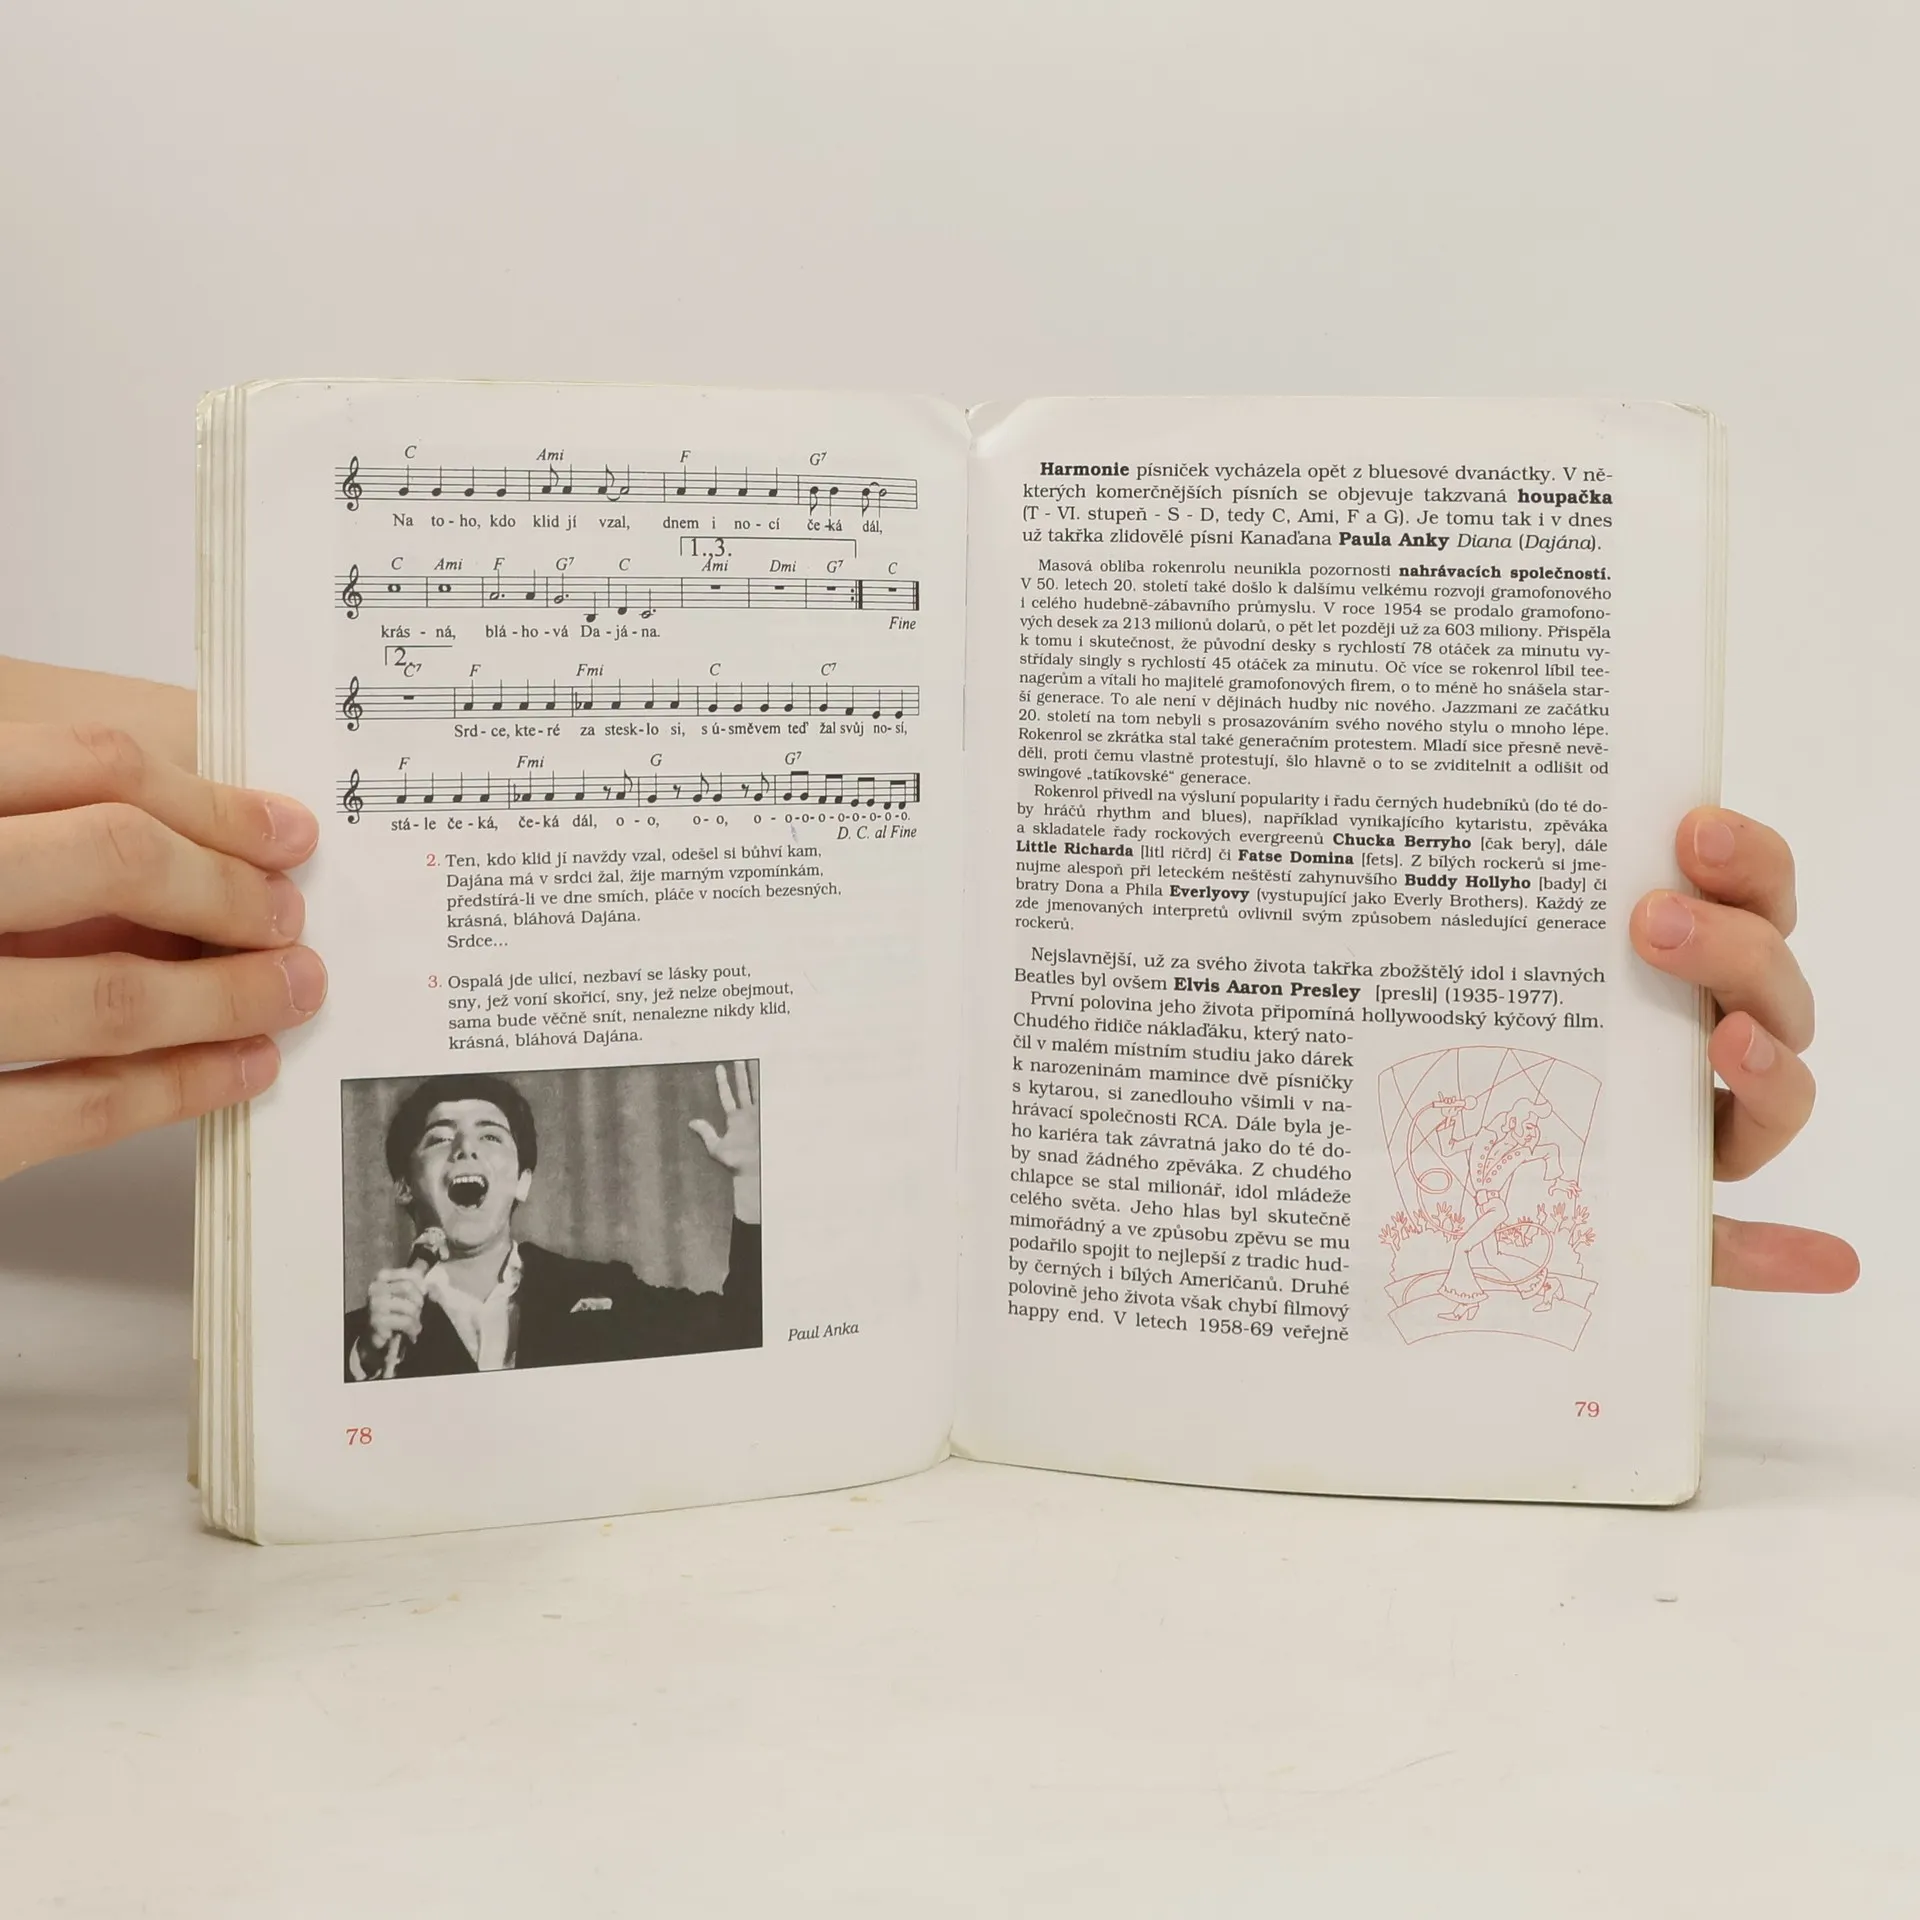 C Ami F G7
Na to - ho, kdo klid jí vzal, dnem i no - cí če - ká dál,
1.,3.
C Ami F G7 C Ami Dmi G7 C
Fine
krás - ná, blá - ho - vá Da - já - na.
2.
C7 F Fmi C C7
Srd - ce, kte - ré za stesk - lo si, s ú - směvem teď žal svůj no - sí,
F Fmi G G7
stá - le če - ká, če - ká dál, o - o, o - o, o - o - o - o - o - o - o - o.
D. C. al Fine
2. Ten, kdo klid jí navždy vzal, odešel si bůhví kam,
Dajána má v srdci žal, žije marným vzpomínkám,
předstírá-li ve dne smích, pláče v nocích bezesných,
krásná, bláhová Dajána.
Srdce...
3. Ospalá jde ulicí, nezbaví se lásky pout,
sny, jež voní skořicí, sny, jež nelze obejmout,
sama bude věčně snít, nenalezne nikdy klid,
krásná, bláhová Dajána.
Paul Anka
78
Harmonie písniček vycházela opět z bluesové dvanáctky. V ně-
kterých komerčnějších písních se objevuje takzvaná houpačka
(T - VI. stupeň - S - D, tedy C, Ami, F a G). Je tomu tak i v dnes
už takřka zlidovělé písni Kanaďana Paula Anky Diana (Dajána).
Masová obliba rokenrolu neunikla pozornosti nahrávacích společností.
V 50. letech 20. století také došlo k dalšímu velkému rozvoji gramofonového
i celého hudebně-zábavního průmyslu. V roce 1954 se prodalo gramofono-
vých desek za 213 milionů dolarů, o pět let později už za 603 miliony. Přispěla
k tomu i skutečnost, že původní desky s rychlostí 78 otáček za minutu vy-
střídaly singly s rychlostí 45 otáček za minutu. Oč více se rokenrol líbil tee-
nagerům a vítali ho majitelé gramofonových firem, o to méně ho snášela star-
ší generace. To ale není v dějinách hudby nic nového. Jazzmani ze začátku
20. století na tom nebyli s prosazováním svého nového stylu o mnoho lépe.
Rokenrol se zkrátka stal také generačním protestem. Mladí sice přesně nevě-
děli, proti čemu vlastně protestují, šlo hlavně o to se zviditelnit a odlišit od
swingové „tatíkovské“ generace.
Rokenrol přivedl na výsluní popularity i řadu černých hudebníků (do té do-
by hráčů rhythm and blues), například vynikajícího kytaristu, zpěváka
a skladatele řady rockových evergreenů Chucka Berryho [čak bery], dále
Little Richarda [litl ričrd] či Fatse Domina [fets]. Z bílých rockerů si jme-
nujme alespoň při leteckém neštěstí zahynuvšího Buddy Hollyho [bady] či
bratry Dona a Phila Everlyovy (vystupující jako Everly Brothers). Každý ze
zde jmenovaných interpretů ovlivnil svým způsobem následující generace
rockerů.
Nejslavnější, už za svého života takřka zbožštělý idol i slavných
Beatles byl ovšem Elvis Aaron Presley [presli] (1935-1977).
První polovina jeho života připomíná hollywoodský kýčový film.
Chudého řidiče náklaďáku, který nato-
čil v malém místním studiu jako dárek
k narozeninám mamince dvě písničky
s kytarou, si zanedlouho všimli v na-
hrávací společnosti RCA. Dále byla je-
ho kariéra tak závratná jako do té do-
by snad žádného zpěváka. Z chudého
chlapce se stal milionář, idol mládeže
celého světa. Jeho hlas byl skutečně
mimořádný a ve způsobu zpěvu se mu
podařilo spojit to nejlepší z tradic hud-
by černých i bílých Američanů. Druhé
polovině jeho života však chybí filmový
happy end. V letech 1958-69 veřejně
79